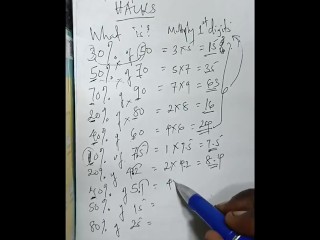 HACKS
What is? Multiply 1st digits
30% of 50 = 3x5 = 15
50% of 70 = 5x7 = 35
70% of 90 = 7x9 = 63
20% of 80 = 2x8 = 16
40% of 60 = 4x6 = 24
10% of 75 = 1x7.5 = 7.5
20% of 42 = 2x42 = 8.4
40% of 51 = 4
50% of 15 =
80% of 25 =